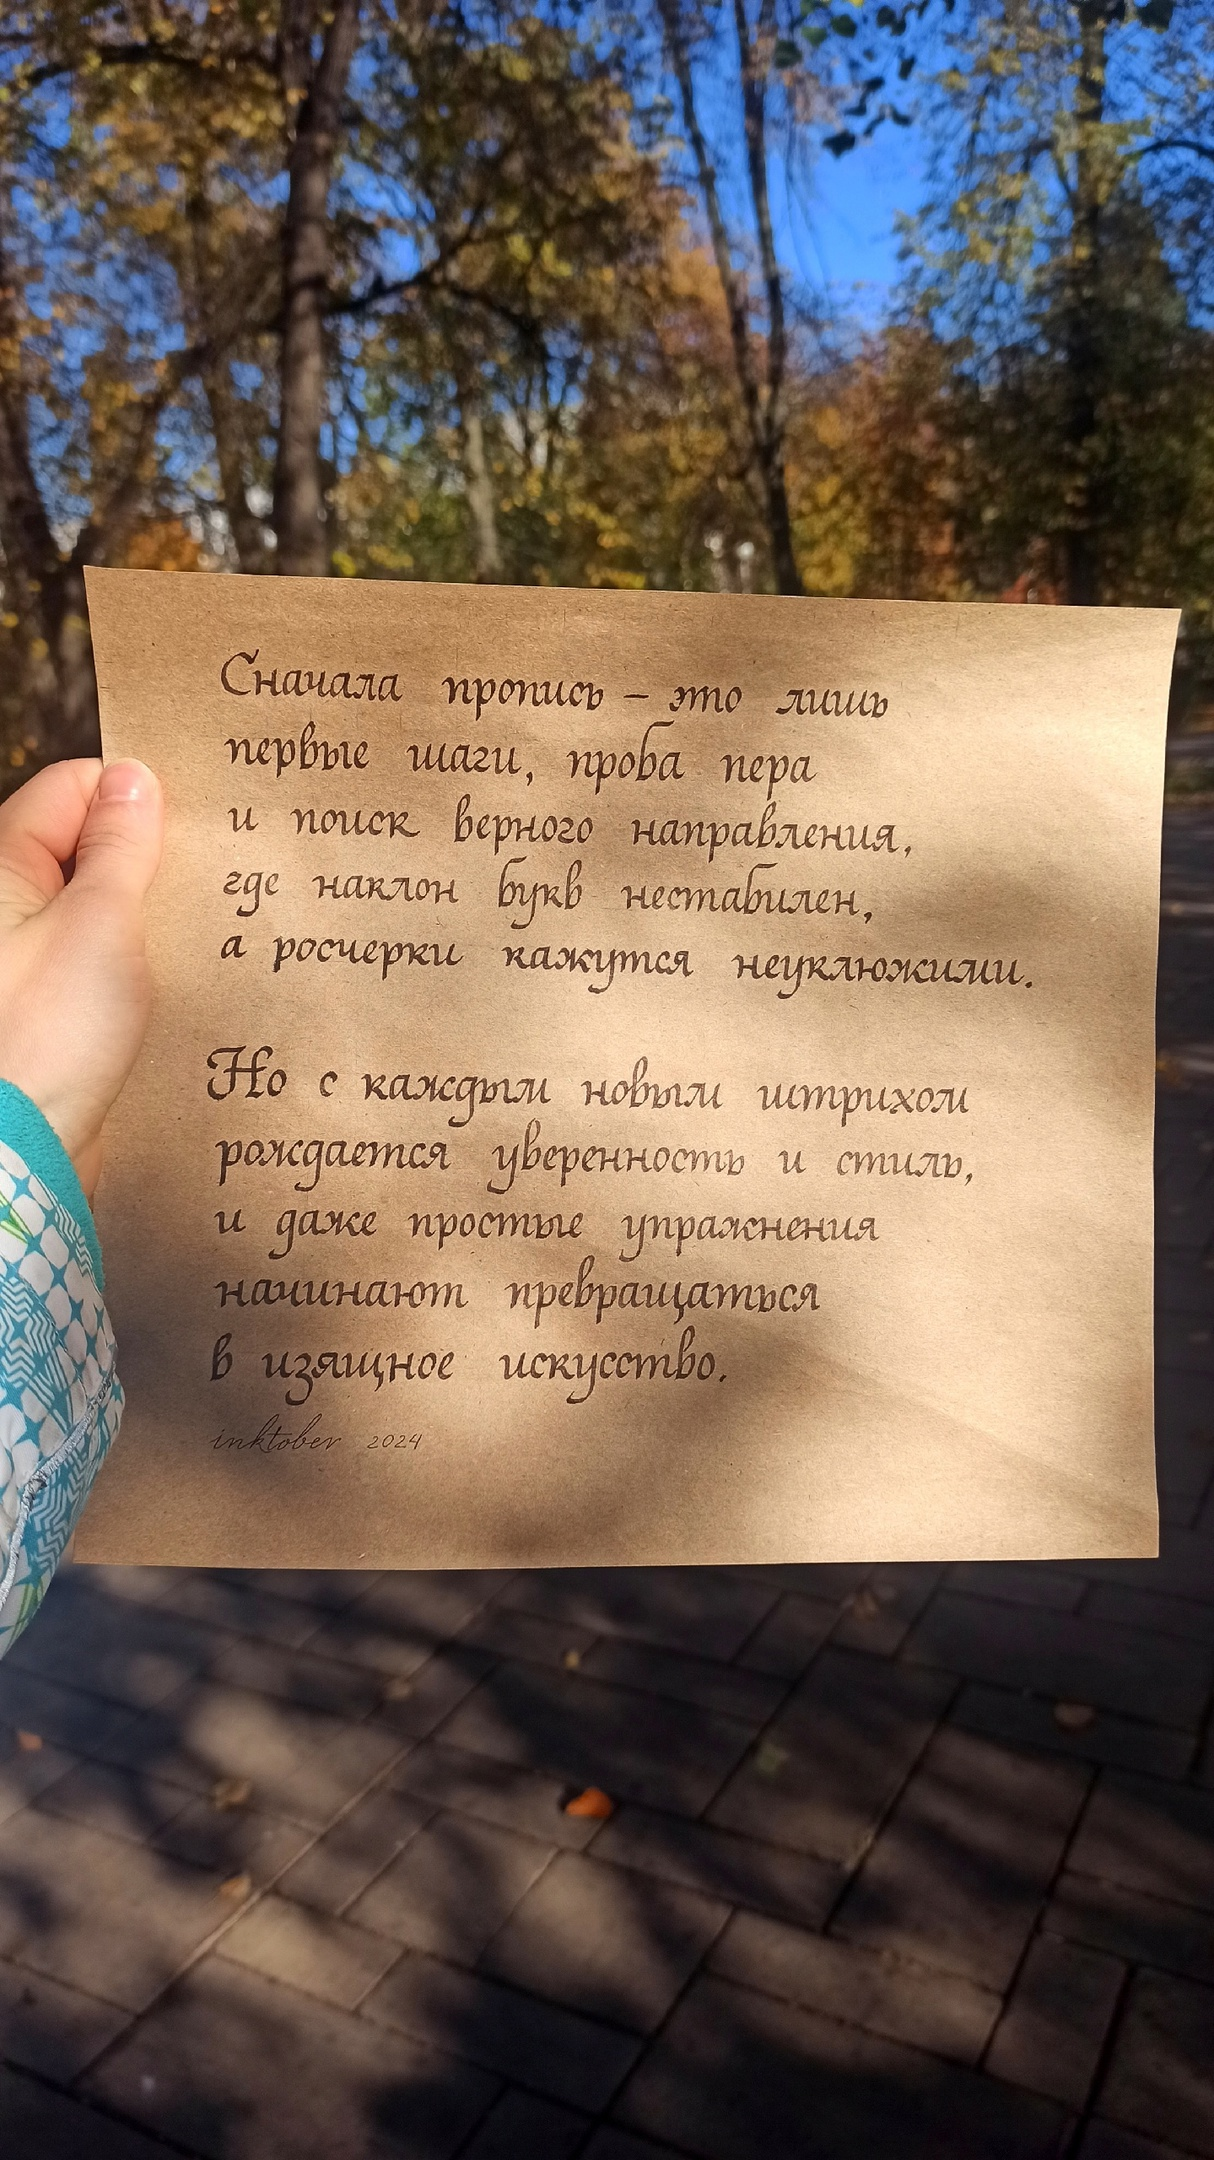 Сначала пропись – это лишь
первые шаги, проба пера
и поиск верного направления,
где наклон букв нестабилен,
а росчерки кажутся неуклюжими.
Но с каждым новым штрихом
рождается уверенность и стиль,
и даже простые упражнения
начинают превращаться
в изящное искусство.
inktober 2024